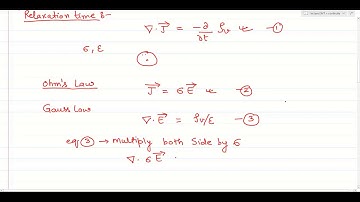 Relaxation time :-
∇ · J⃗ = -∂/∂t ρv — ①
σ, ε
Ohm's Law J⃗ = σ E⃗ — ②
Gauss Law ∇ · E⃗ = ρv/ε — ③
eq ③ → Multiply both Side by σ
∇ · σ E⃗